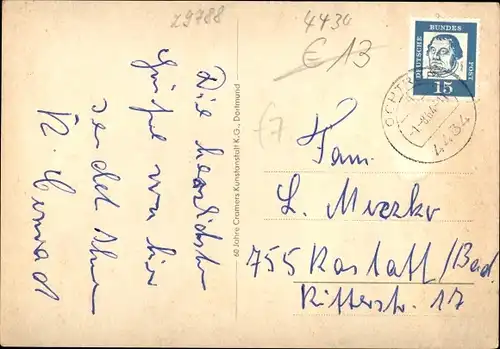 29788
4430
€ 13
DEUTSCHE BUNDES POST
15
OCHTR
4434
Die herzlichsten
Grüße von hier
sendet Ihnen
K. Conrad
60 Jahre Cramers Kunstanstalt K.G., Dortmund
(7
Fam.
L. Muczko
755 Rastatt/Bad.
Ritterstr. 17